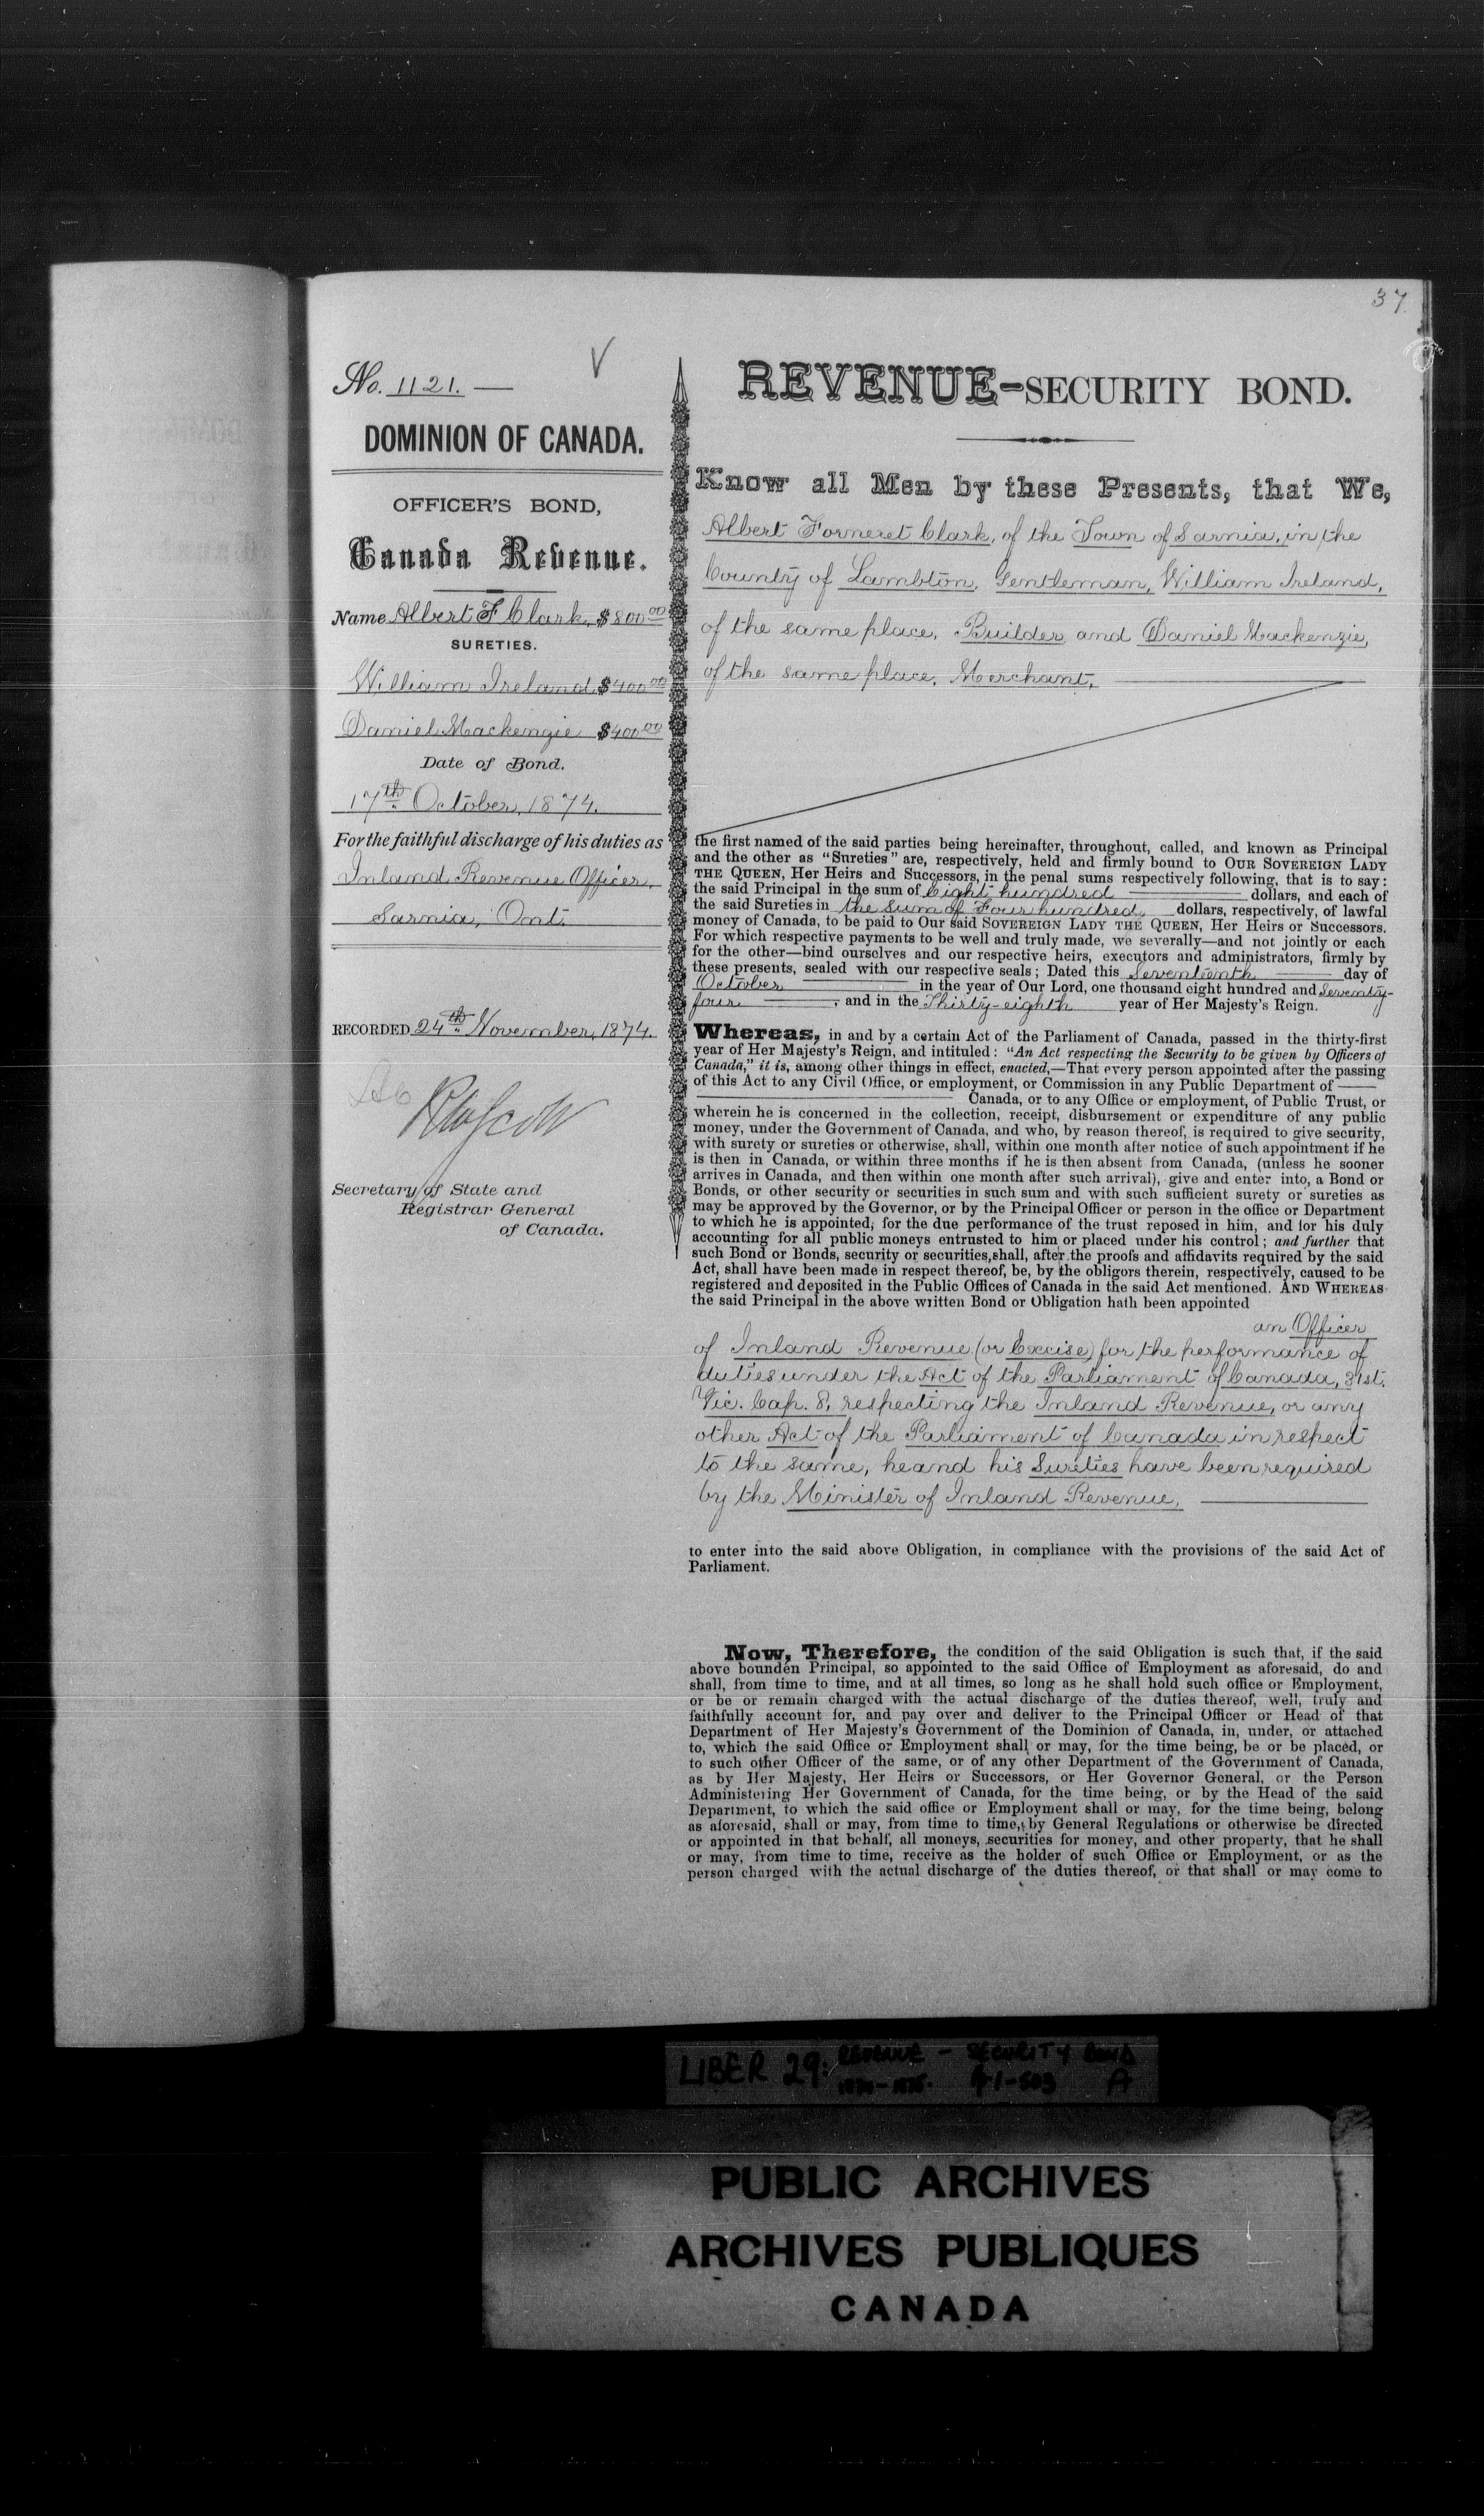 37.
No. 1121.
DOMINION OF CANADA.
OFFICER'S BOND,
Canada Revenue.
Name Albert F Clark, $800 00
SURETIES.
William Ireland $400 00
Daniel Mackenzie $400 00
Date of Bond.
17th October, 1874.
For the faithful discharge of his duties as
Inland Revenue Officer,
Sarnia, Ont.
RECORDED 24th November, 1874.
Secretary of State and
Registrar General
of Canada.
REVENUE-SECURITY BOND.
Know all Men by these Presents, that We,
Albert Forneret Clark, of the Town of Sarnia, in the
County of Lambton, Gentleman, William Ireland,
of the same place, Builder and Daniel Mackenzie,
of the same place, Merchant,
the first named of the said parties being hereinafter, throughout, called, and known as Principal
and the other as "Sureties" are, respectively, held and firmly bound to OUR SOVEREIGN LADY
THE QUEEN, Her Heirs and Successors, in the penal sums respectively following, that is to say:
the said Principal in the sum of Eight hundred dollars, and each of
the said Sureties in the Sum of Four hundred, dollars, respectively, of lawful
money of Canada, to be paid to Our said SOVEREIGN LADY THE QUEEN, Her Heirs or Successors.
For which respective payments to be well and truly made, we severally—and not jointly or each
for the other—bind ourselves and our respective heirs, executors and administrators, firmly by
these presents, sealed with our respective seals; Dated this Seventeenth day of
October in the year of Our Lord, one thousand eight hundred and Seventy-
four, and in the Thirty-eighth year of Her Majesty's Reign.
Whereas, in and by a certain Act of the Parliament of Canada, passed in the thirty-first
year of Her Majesty's Reign, and intituled: "An Act respecting the Security to be given by Officers of
Canada," it is, among other things in effect, enacted,—That every person appointed after the passing
of this Act to any Civil Office, or employment, or Commission in any Public Department of ——
Canada, or to any Office or employment, of Public Trust, or
wherein he is concerned in the collection, receipt, disbursement or expenditure of any public
money, under the Government of Canada, and who, by reason thereof, is required to give security,
with surety or sureties or otherwise, shall, within one month after notice of such appointment if he
is then in Canada, or within three months if he is then absent from Canada, (unless he sooner
arrives in Canada, and then within one month after such arrival), give and enter into, a Bond or
Bonds, or other security or securities in such sum and with such sufficient surety or sureties as
may be approved by the Governor, or by the Principal Officer or person in the office or Department
to which he is appointed, for the due performance of the trust reposed in him, and for his duly
accounting for all public moneys entrusted to him or placed under his control; and further that
such Bond or Bonds, security or securities, shall, after the proofs and affidavits required by the said
Act, shall have been made in respect thereof, be, by the obligors therein, respectively, caused to be
registered and deposited in the Public Offices of Canada in the said Act mentioned. AND WHEREAS
the said Principal in the above written Bond or Obligation hath been appointed
an Officer
of Inland Revenue (or Excise) for the performance of
duties under the Act of the Parliament of Canada, 31st.
Vic. Cap. 8, respecting the Inland Revenue, or any
other Act of the Parliament of Canada in respect
to the same, he and his Sureties have been required
by the Minister of Inland Revenue,
to enter into the said above Obligation, in compliance with the provisions of the said Act of
Parliament.
Now, Therefore, the condition of the said Obligation is such that, if the said
above bounden Principal, so appointed to the said Office of Employment as aforesaid, do and
shall, from time to time, and at all times, so long as he shall hold such office or Employment,
or be or remain charged with the actual discharge of the duties thereof, well, truly and
faithfully account for, and pay over and deliver to the Principal Officer or Head of that
Department of Her Majesty's Government of the Dominion of Canada, in, under, or attached
to, which the said Office or Employment shall or may, for the time being, be or be placed, or
to such other Officer of the same, or of any other Department of the Government of Canada,
as by Her Majesty, Her Heirs or Successors, or Her Governor General, or the Person
Administering Her Government of Canada, for the time being, or by the Head of the said
Department, to which the said office or Employment shall or may, for the time being, belong
as aforesaid, shall or may, from time to time, by General Regulations or otherwise be directed
or appointed in that behalf, all moneys, securities for money, and other property, that he shall
or may, from time to time, receive as the holder of such Office or Employment, or as the
person charged with the actual discharge of the duties thereof, or that shall or may come to
LIBER 29: REVENUE - SECURITY BOND
1874-1875. A
PUBLIC ARCHIVES
ARCHIVES PUBLIQUES
CANADA